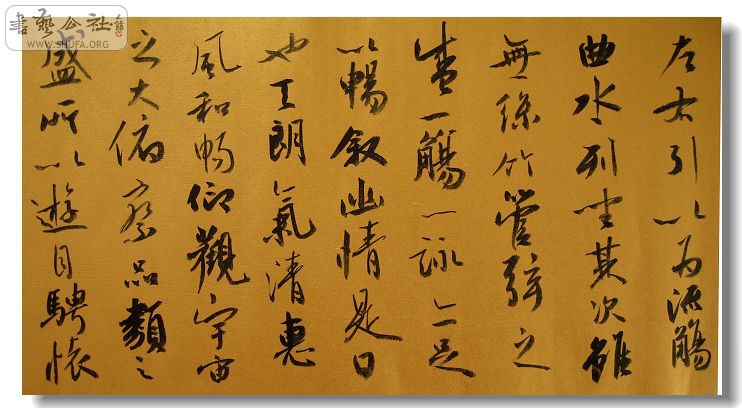 左右引以為流觴
曲水列坐其次雖
無絲竹管弦之
盛一觴一詠亦足
以暢敘幽情是日
也天朗氣清惠
風和暢仰觀宇宙
之大俯察品類之
盛所以遊目騁懷
書藝公社
WWW.SHUFA.ORG